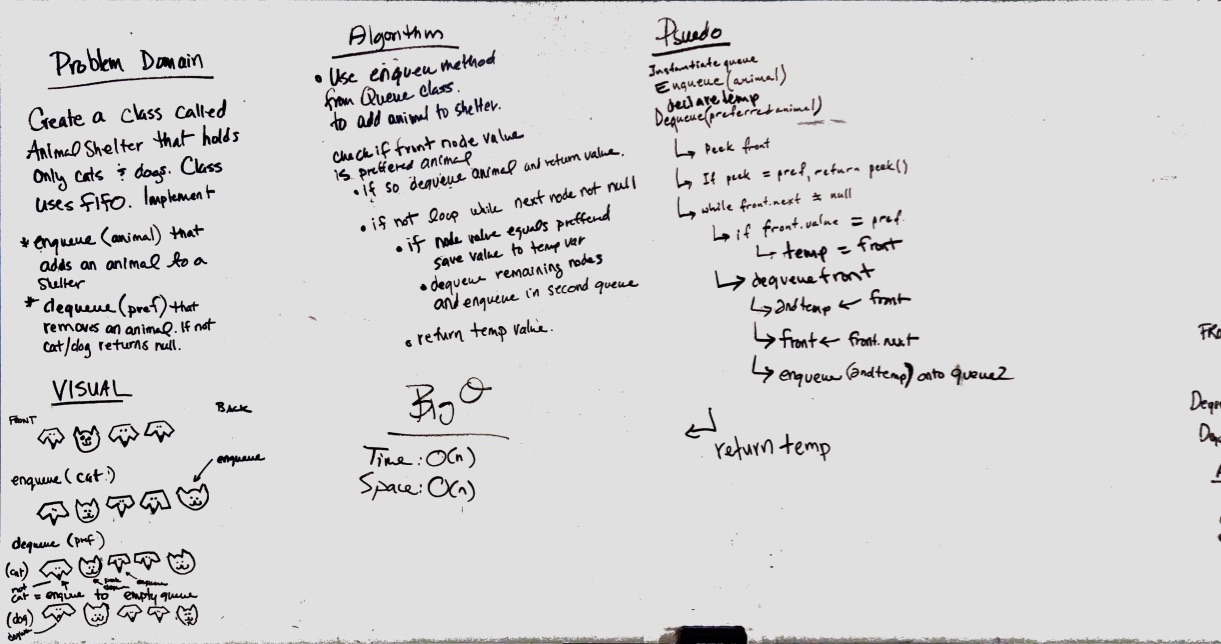 Problem Domain
Create a Class called
Animal Shelter that holds
Only cats & dogs. Class
uses FIFO. Implement
* enqueue (animal) that
adds an animal to a
shelter
* dequeue (pref) that
removes an animal. If not
cat/dog returns null.
VISUAL
FRONT
BACK
enqueue (cat)
enqueue
dequeue (pref)
(cat)
not
cat = enqueue to empty queue
enqueue
(dog)
Algorithm
• Use enqueu method
from Queue class.
to add animal to shelter.
check if front node value
is preffered animal
• If so dequeue animal and return value.
• if not loop while next node not null
• if node value equals preffend
save value to temp var
• dequeue remaining nodes
and enqueue in second queue
• return temp value.
Big O
Time: O(n)
Space: O(n)
Psuedo
Instantiate queue
Enqueue (animal)
declare temp
Dequeue (preferred animal)
↳ Peek front
↳ If peek = pref, return peek()
↳ while front.next ≠ null
↳ if front.value = pref.
↳ temp = front
↳ dequeue front
↳ 2ndtemp ← front
↳ front ← front.next
↳ enqueue (2ndtemp) onto queue2
↵
return temp